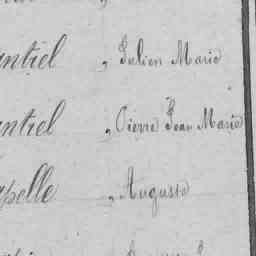 ntiel, Julien Marie
ntiel, Pierre Jean Marie
pelle, Auguste